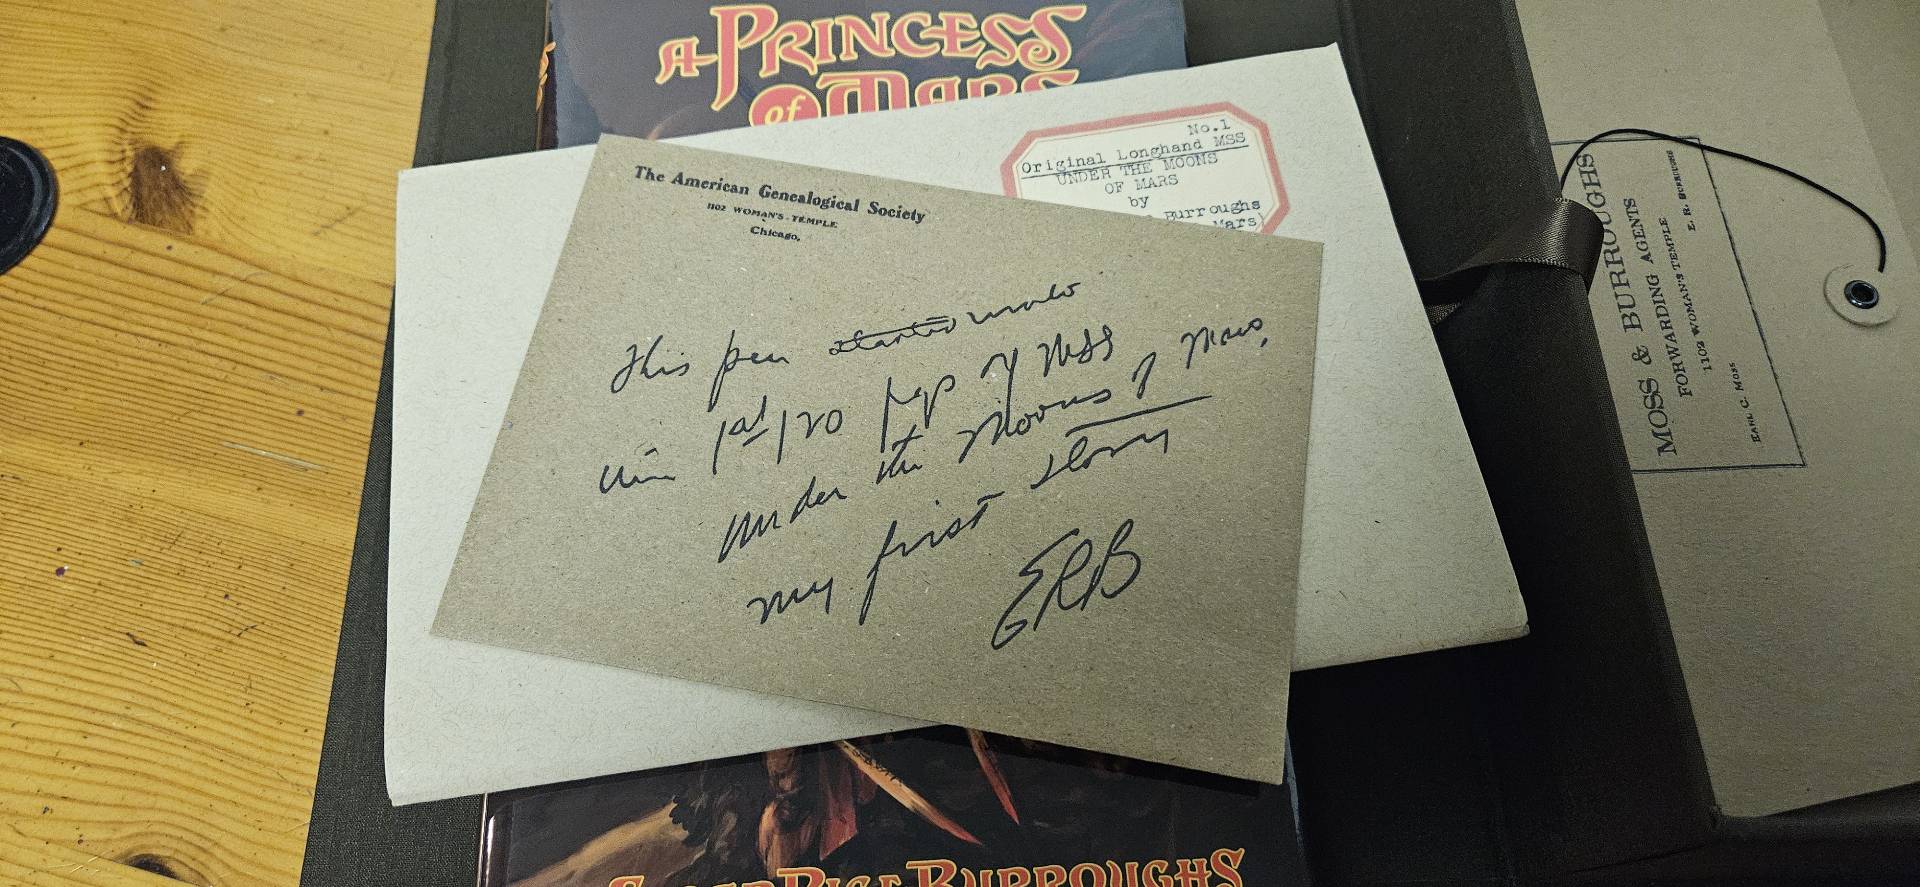 A PRINCESS
of MARS
No.1
Original Longhand MSS
UNDER THE MOONS
OF MARS
by
Burroughs
Mars)
The American Genealogical Society
1102 WOMAN'S-TEMPLE
Chicago,
This pen started
1st 120 pgs of MSS
under the Moons of Mars,
my first story
ERB
MOSS & BURROUGHS
FORWARDING AGENTS
1102 WOMAN'S TEMPLE
EARL C. MOSS
E. R. BURROUGHS
EDGAR RICE BURROUGHS